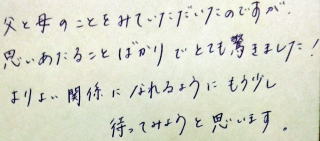 父と母のことをみていただいたのですが、
思いあたることばかりでとても驚きました！
よりよい関係になれるようにもう少し
待ってみようと思います。